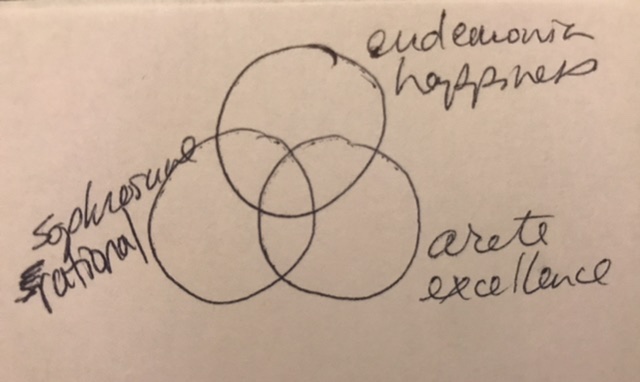 eudemonia
happiness
sophrosune
rational
arete
excellence